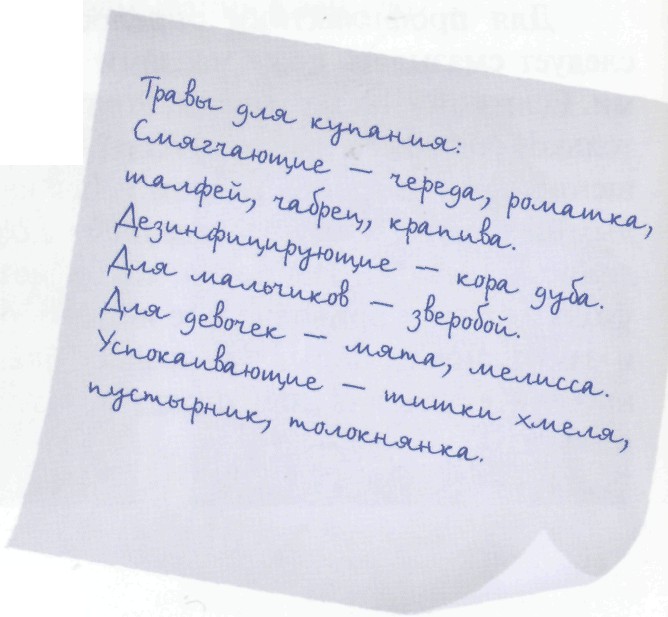 Травы для купания:
Смягчающие — череда, ромашка,
шалфей, чабрец, крапива.
Дезинфицирующие — кора дуба.
Для мальчиков — зверобой.
Для девочек — мята, мелисса.
Успокаивающие — шишки хмеля,
пустырник, толокнянка.